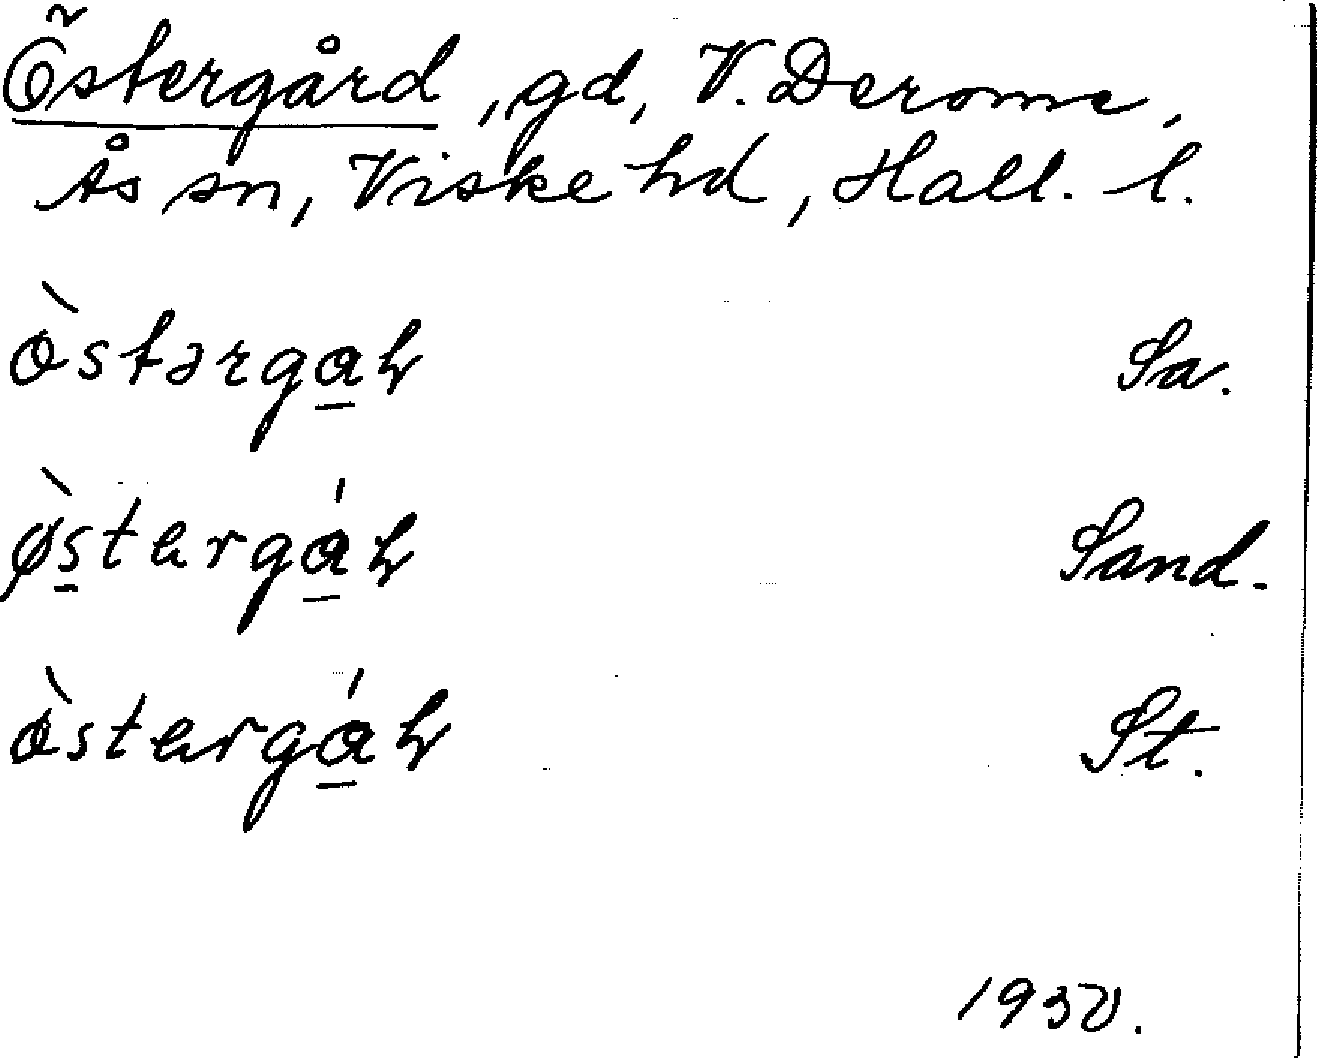 Östergård, gd, V. Derome,
Ås sn, Viske hd, Hall. l.
òstərga̲ꝉ Sa.
ø̀s̲tərgá̲ꝉ Sand.
òstərgá̲ꝉ St.
1930.